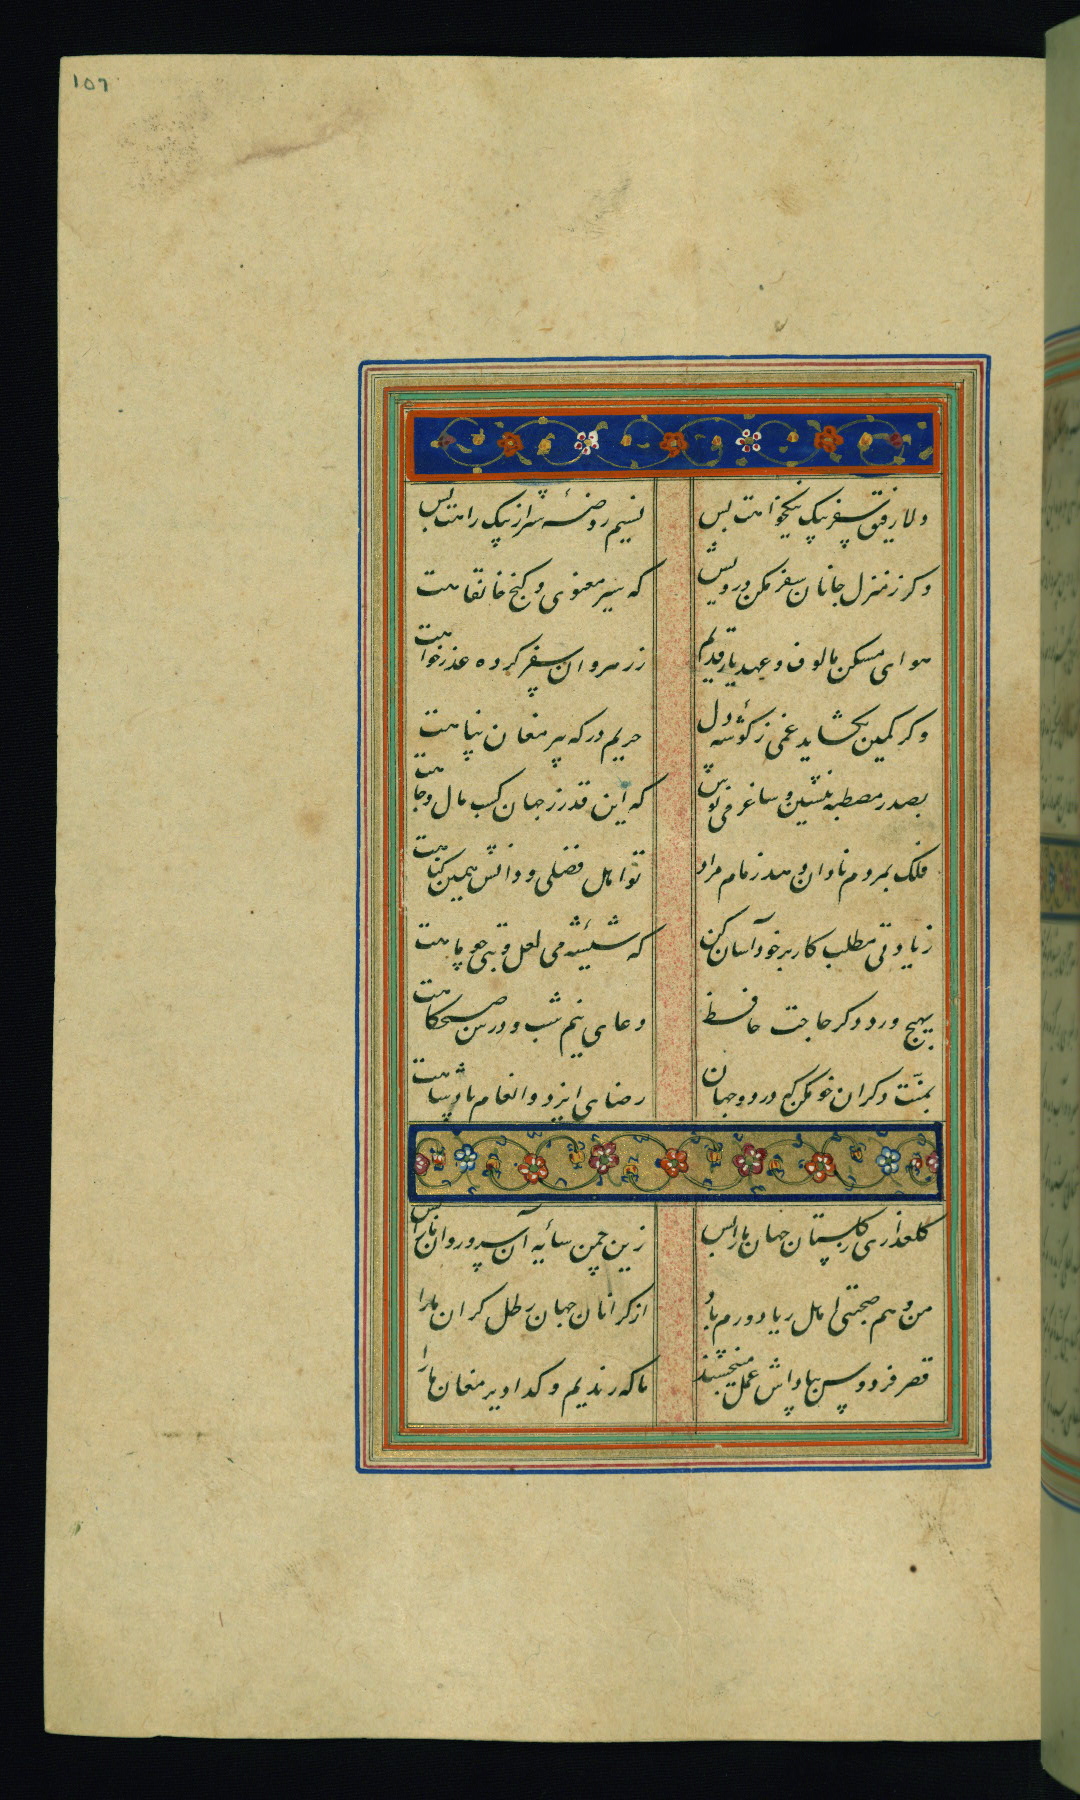 ۱۵۶
دلا رفیق سفر بخت نیکخواهت بس نسیم روضهٔ شیراز پیک راهت بس
وکر ز منزل جانان سفر مکن درویش که سیر معنوی و کنج خانقاهت
هوای مسکن مالوف و عهد یار قدیم ز رهروان سفر کرده عذرخواهت
وکر کمین بکشاید غمی ز کوشهٔ دل حریم درکه پیر مغان پناهت
بصدر مصطبه بنشین و ساغر می نوش که این قدر ز جهان کسب مال و جاهت
فلک بمردم نادان دهد زمام مراد تو اهل فضلی و دانش همین کناهت
زیادتی مطلب کار بر خود آسان کن که شیشهٔ می لعل و بتی چو ماهت
بهیچ ورد دکر حاجت حافظ دعای نیم شب و درس صبحکاهت
بمنت دکران خو مکن که در دو جهان رضای ایزد و انعام پادشاهت
کلعذاری ز کلستان جهان ما را بس زین چمن سایهٔ آن سرو روان ما را بس
من و هم صحبتی اهل ریا دورم باد از کرانان جهان رطل کران ما را
قصر فردوس بپاداش عمل میبخشند ما که رندیم و کدا دیر مغان ما را